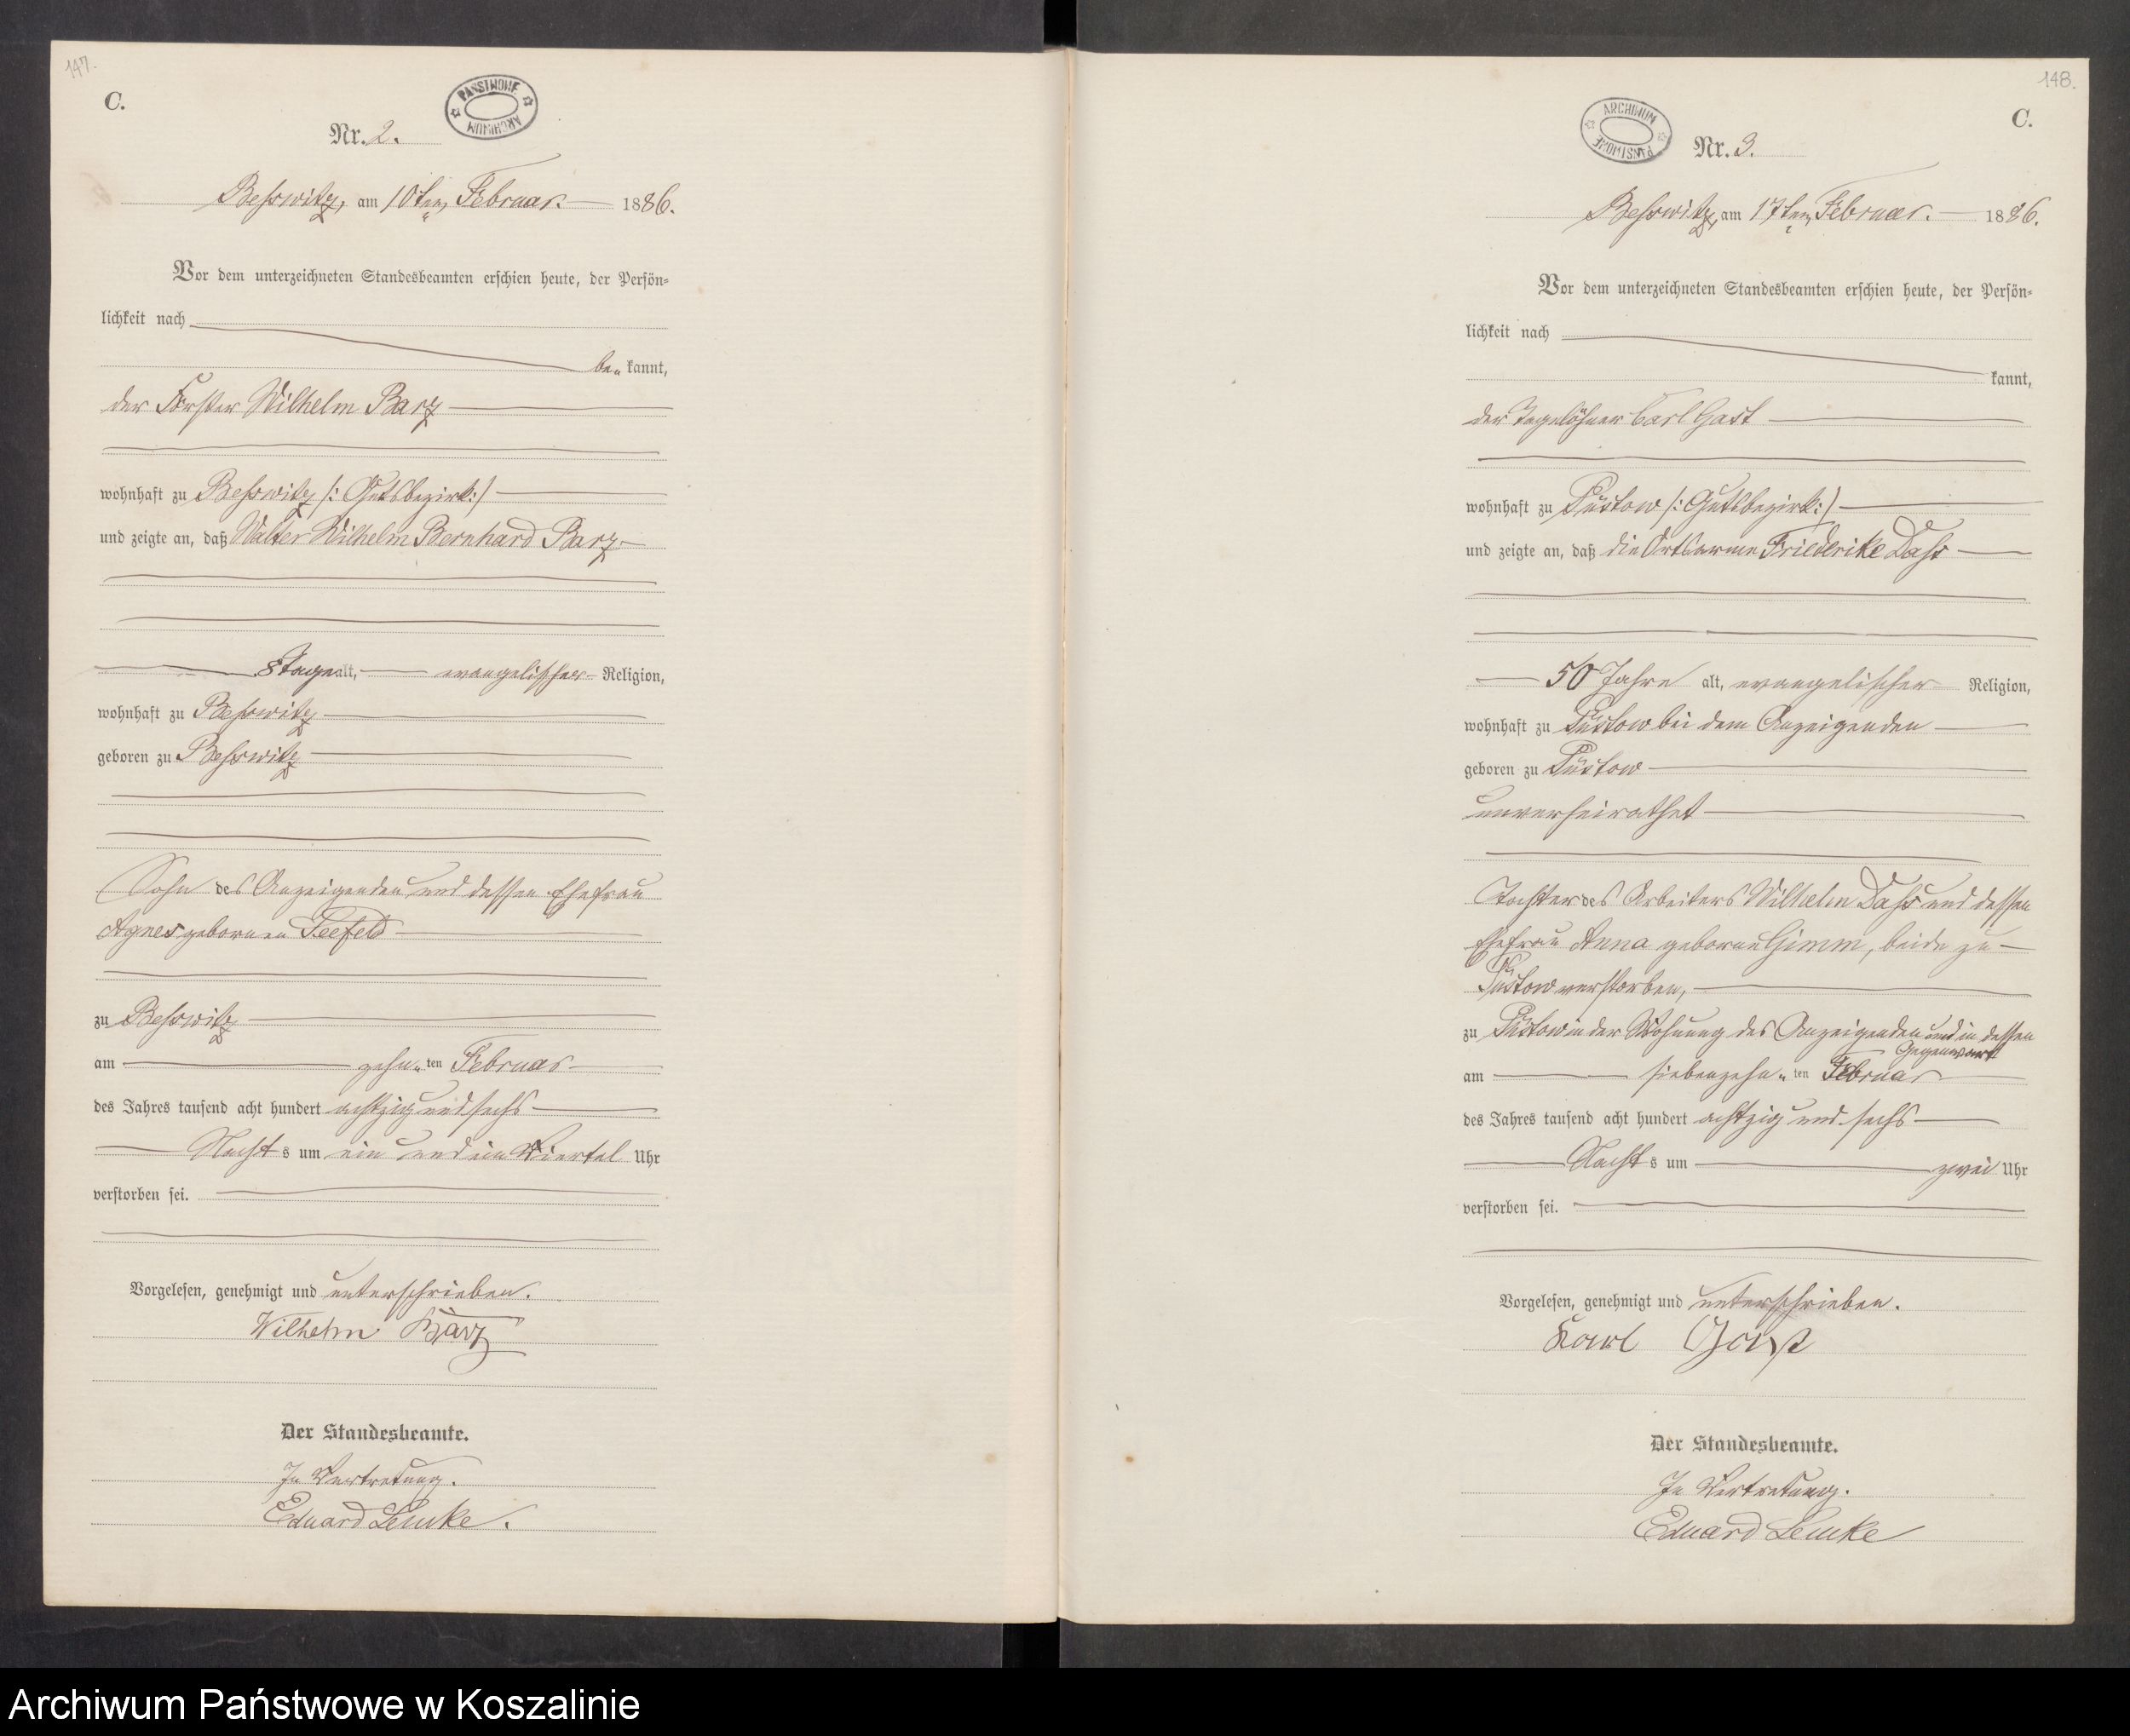 147.
C.
PAŃSTWOWE ARCHIWUM
Nr. 2.
Beßwitz, am 10ten Februar 1886.
Vor dem unterzeichneten Standesbeamten erschien heute, der Persön-
lichkeit nach
be kannt,
der Förster Wilhelm Barz
wohnhaft zu Beßwitz /: Gutsbezirk :/
und zeigte an, daß Walter Wilhelm Bernhard Barz
8 Tage alt, evangelischer Religion,
wohnhaft zu Beßwitz
geboren zu Beßwitz
Sohn des Anzeigenden und dessen Ehefrau
Agnes gebornen Teefeld
zu Beßwitz
am zehn ten Februar
des Jahres tausend acht hundert achtzig und sechs
Nacht s um ein und ein Viertel Uhr
verstorben sei.
Vorgelesen, genehmigt und unterschrieben.
Wilhelm Barz
Der Standesbeamte.
In Vertretung.
Eduard Lemke.
148.
C.
ARCHIWUM PAŃSTWOWE
Nr. 3.
Beßwitz, am 17ten Februar. 1886.
Vor dem unterzeichneten Standesbeamten erschien heute, der Persön-
lichkeit nach
kannt,
der Tagelöhner Carl Gast
wohnhaft zu Püstow /: Gutsbezirk :/
und zeigte an, daß die Ortsarme Friederike Dahs
50 Jahre alt, evangelischer Religion,
wohnhaft zu Püstow bei dem Anzeigenden
geboren zu Püstow
unverheirathet
Tochter des Arbeiters Wilhelm Dahs und dessen
Ehefrau Anna geborne Gimm, beide zu
Püstow verstorben,
zu Püstow in der Wohnung des Anzeigenden und in dessen
Gegenwart
am siebenzehn ten Februar
des Jahres tausend acht hundert achtzig und sechs
Nacht s um zwei Uhr
verstorben sei.
Vorgelesen, genehmigt und unterschrieben.
Karl Gast
Der Standesbeamte.
In Vertretung.
Eduard Lemke
Archiwum Państwowe w Koszalinie